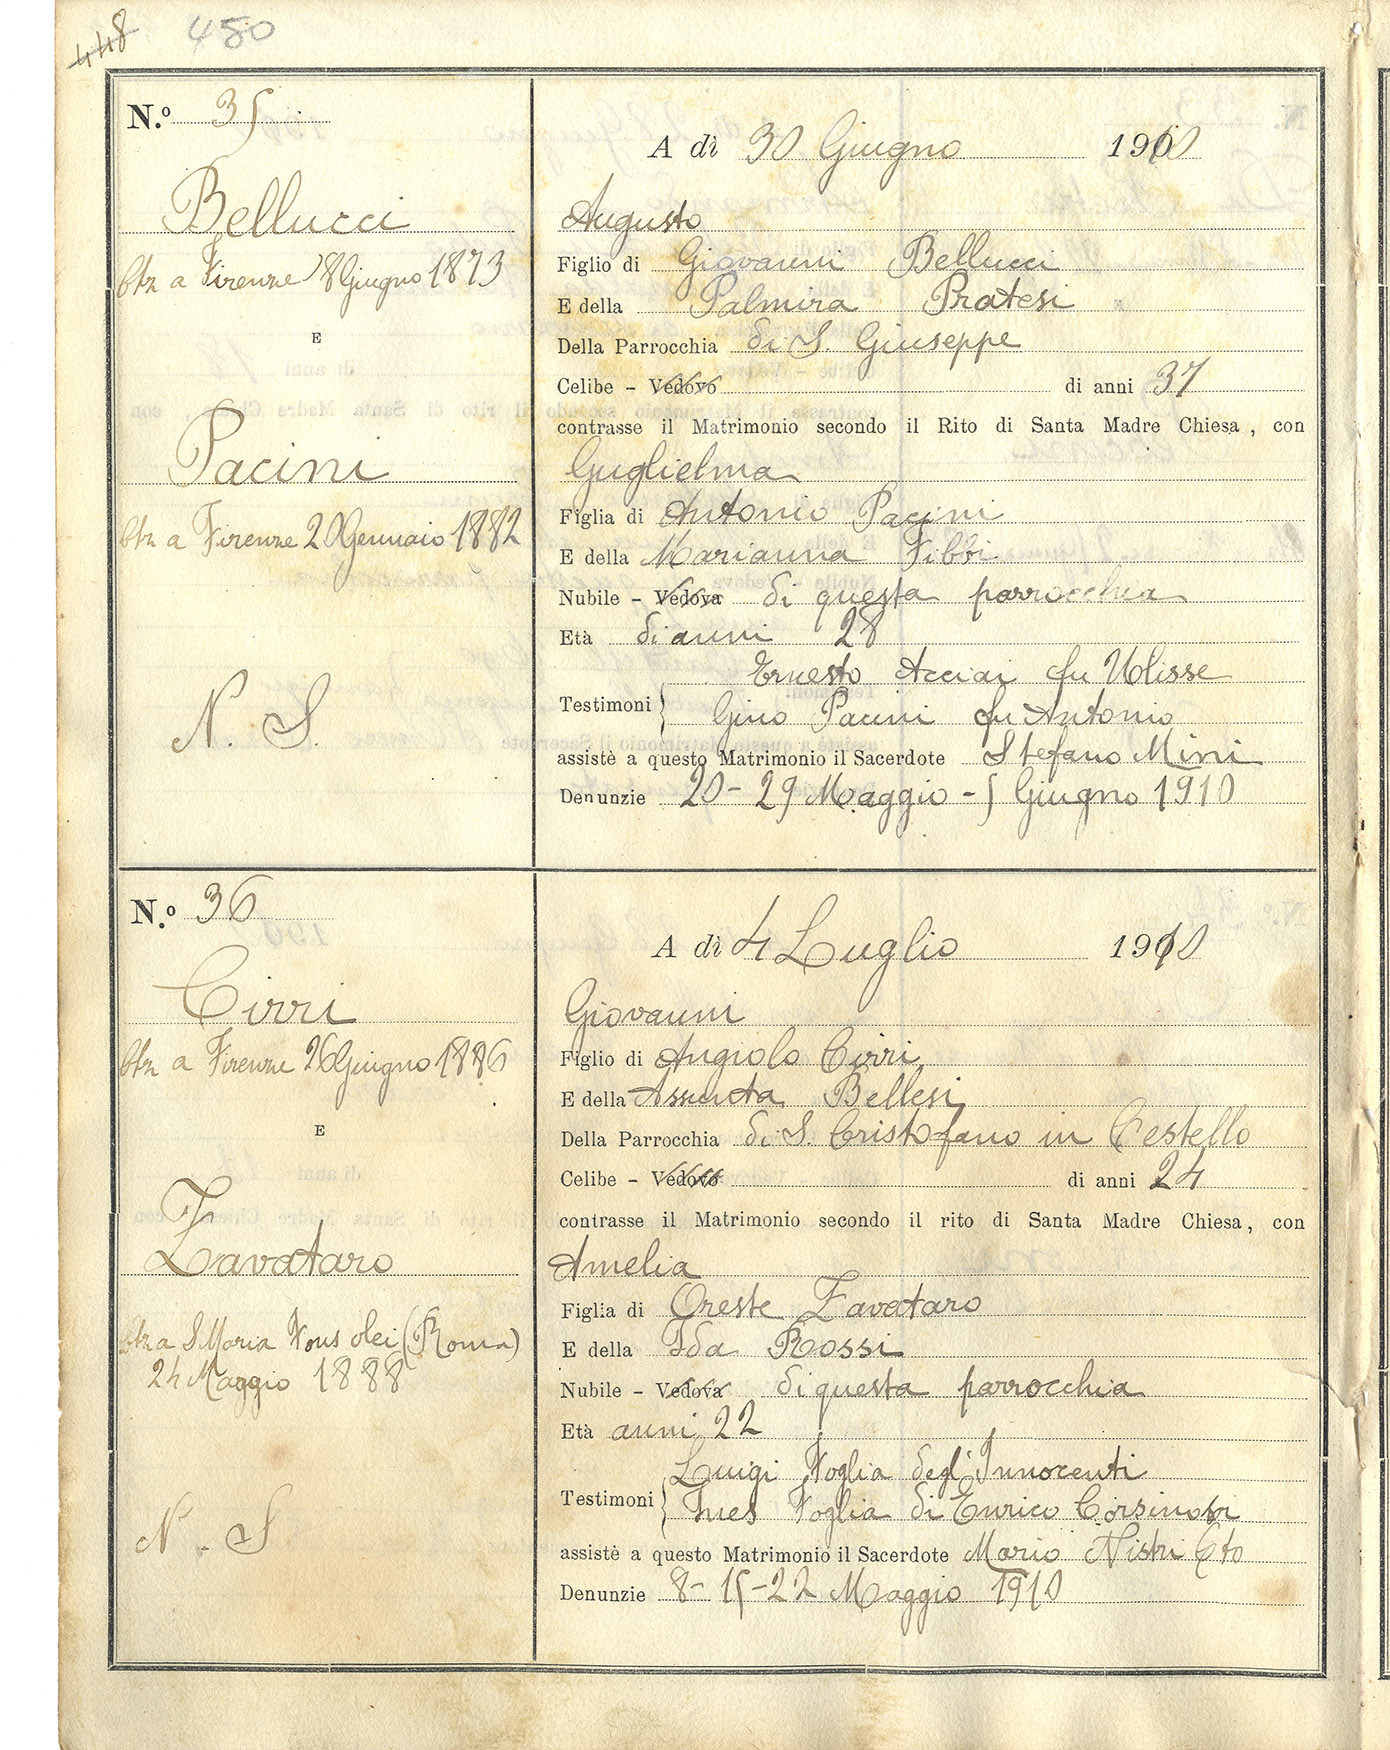 448 450
N.º 35
Bellucci
btz a Firenze 8 Giugno 1873
E
Pacini
btz a Firenze 20 Gennaio 1882
N. S.
A dì 30 Giugno 1910
Augusto
Figlio di Giovanni Bellucci
E della Palmira Pratesi
Della Parrocchia di S. Giuseppe
Celibe - Vedovo di anni 37
contrasse il Matrimonio secondo il Rito di Santa Madre Chiesa, con
Guglielma
Figlia di Antonio Pacini
E della Marianna Fibbi
Nubile - Vedova di questa parrocchia
Età di anni 28
Ernesto Acciai fu Ulisse
Testimoni
Gino Pacini fu Antonio
assistè a questo Matrimonio il Sacerdote Stefano Mini
Denunzie 20 - 29 Maggio - 5 Giugno 1910
N.º 36
Cirri
btz a Firenze 26 Giugno 1886
E
Zavataro
btz a S Maria Fons olei (Roma)
24 Maggio 1888
N. S
A dì 4 Luglio 1910
Giovanni
Figlio di Angiolo Cirri
E della Assunta Bellesi
Della Parrocchia di S. Cristofano in Cestello
Celibe - Vedovo di anni 24
contrasse il Matrimonio secondo il rito di Santa Madre Chiesa, con
Amelia
Figlia di Oreste Zavataro
E della Ida Rossi
Nubile - Vedova di questa parrocchia
Età anni 22
Luigi Foglia degl'Innocenti
Testimoni
Ines Foglia di Enrico Corsinovi
assistè a questo Matrimonio il Sacerdote Mario Nistri
Denunzie 8 - 15 - 22 Maggio 1910